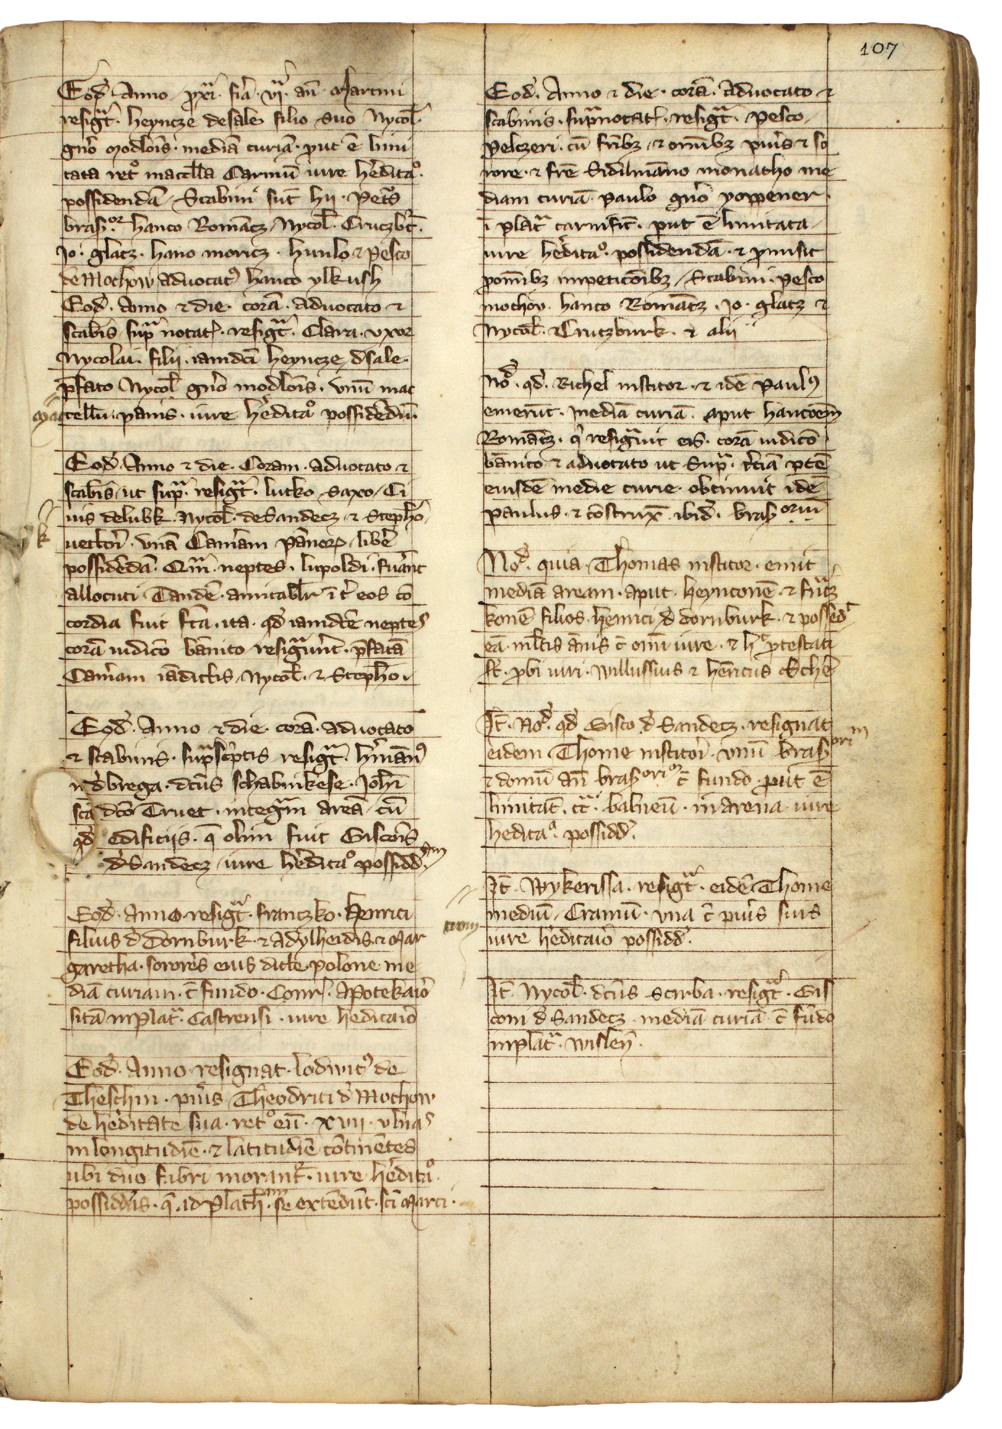 107
Eod. Anno. pxi. fia. vi. an̄. Martini
resigt. heyncze desale filio suo Nycol.
gn̄o modlois. mediā curiā. put ē limi
tata ret macella Carniū iure hēdita.
possidendā. Scabini sūt hii. Pets
bras.or hanco Romācz. Nycol. Cruczbc.
Jo. glacz. hano moricz. hunlo & Pesco
de Mochow advocat hanco ylkush
Eod. Anno & die. corā. advocato &
scabis sup notat. resigt. Clara. vxor
Nycolai. filii. iamdci heyncze dsale.
pfato Nycol gn̄o modlois. vnū mac
cellū. panis. iure hēdita possidēdū.
Eod. Anno & die. Coram. advocato &
scabis. ut sup. resigt. lutko. saxo. Ci
uis delubk. Nycol. deSandecz. & Stepho
vectori. vnā Camām pānor. libē
possidēdā. Qm. neptes. lupoldi. fuānt
allocuti. Tandē. amicablr īt eos cō
cordia fuit fcā. ita. qd iamdcē neptes
corā iudico bānito resigunt. pfatā
Camām iādictis. Nycol. & Stepho.
Eod. Anno & die. corā. advocato
& scabinis. supscptis resigt. hmān
n dbrega. dcus schabinkese. Johi
sca dco Truet. integm areā. cū
qd edificiis. q olim fuit Giscois
d Sandecz. iure hēdita possidd.
Eod. Anno. resigt. franczko. henrici
filius d Dornburk. & adylheidis. & Mar
garetha. sorores eius dicte. polone me
diā curiam. c fundo. Conr. Apotekaio
sitā inplat. Castrensi. iure hedicaio
Eod. Anno. resignat. lodwic de
Theschin. pius. Theodrici d Mochow
de hēditate sua. ret eū. xvii. vlnas
in longitudiē. & latitudiē cōtinētes
ubi duo fabri morant. iure hēdita.
possiddis. q. ad plath. se extēdūt. sci Marci.
Eod. Anno & die. corā. advocato &
scabinis. supnotat. resigt. Pesco
Pelczeri. cū frib & omib pius & so
rore. & fre Sidilmāno monacho me
diam curiā. Paulo gn̄o yoppener.
i plat carnific. put ē limitata.
iure hēdita. possidendā. & pmisit
pomib impeticoib. Scabini. Pesco
mochow. hanco Romācz. Jo. glacz &
Nycol. Cruczburk. & alii
No. qd. Richel institor. & idē Paul
emerūt. mediā curiā. aput hancoēm
Romācz. q resiguit eis. corā iudico
bānito & advocato ut sup. tciā ptē
eiusdē medie curie. obtinuit idē
paulus. & cōstrux ibid. brasoriū
No. quia. Thomas institor. emit
mediā aream. aput. heynconē & fricz
konē filios. henrici d dornburk. & possed
eā. mltis ānis c omi iure. & h ptestati
st. pbi viri. Willussius & hēricus Eche
It. No. qd Gisco d Sandecz. resignat
eidem. Thome institori. vnū bras
& domū an bras.ori c fundo. put ē
limitat. ct. balneū. in arena. iure
hedita. possidd.
It. Wykerissa. resigt. eidē. Thome
mediū. Cramū. vna c pius suis
iure hēdicaio possidd.
It. Nycol. dcus scriba. resigt. Gis
coni d Sandecz. mediā curiā c fūdo
inplat. wislen.